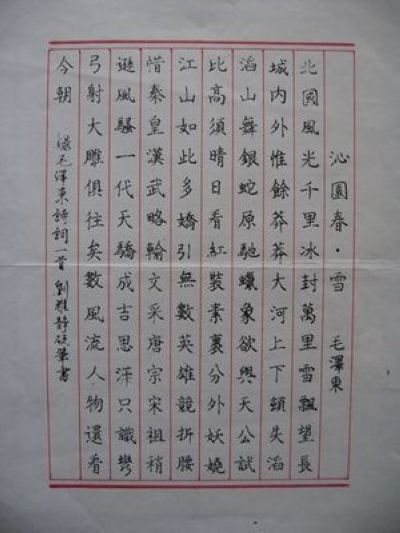 沁園春·雪 毛澤東
北國風光千里冰封萬里雪飄望長
城內外惟餘莽莽大河上下頓失滔
滔山舞銀蛇原馳蠟象欲與天公試
比高須晴日看紅裝素裹分外妖嬈
江山如此多嬌引無數英雄競折腰
惜秦皇漢武略輸文采唐宗宋祖稍
遜風騷一代天驕成吉思汗只識彎
弓射大雕俱往矣數風流人物還看
今朝
毛澤東詩詞一首 劉雅靜硬筆書